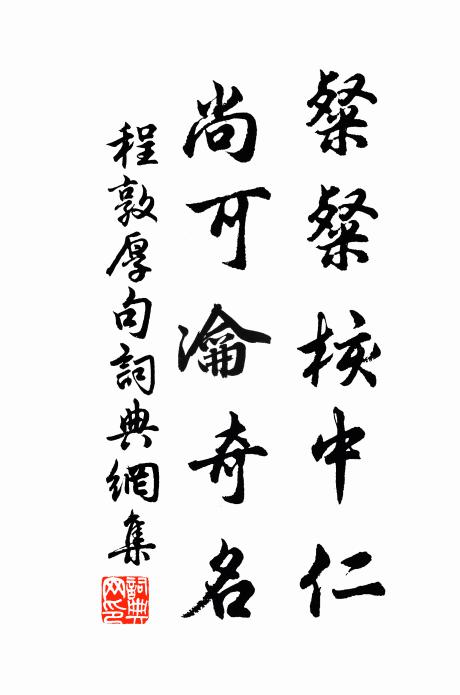 粲粲核中仁
尚可瀹奇名
程敦厚句詞典網集
詞典網印